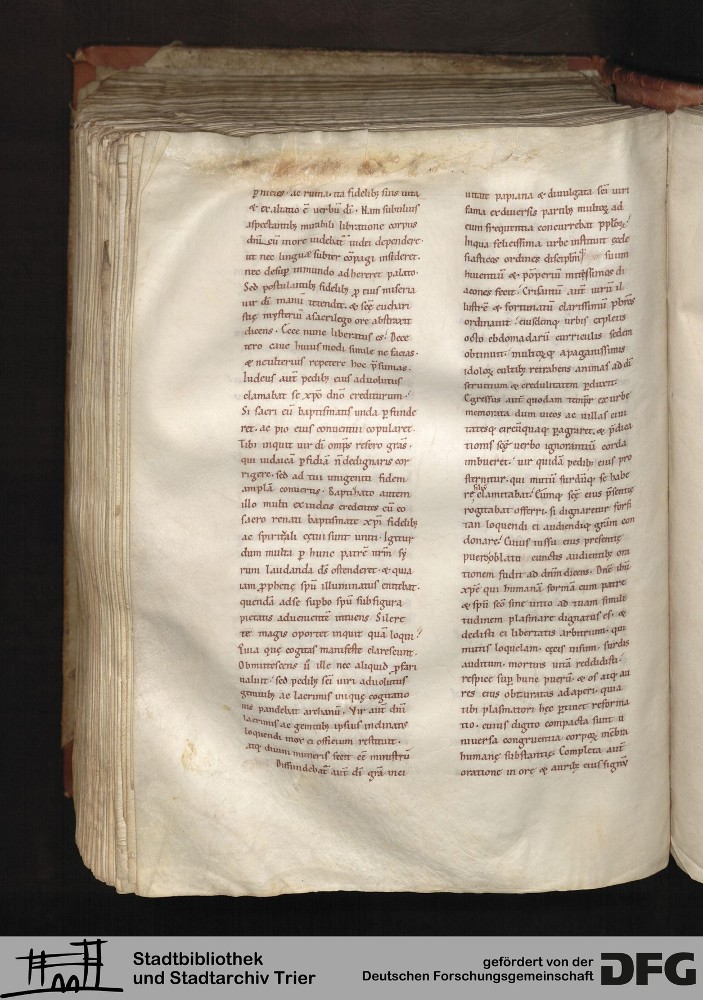 ꝑnicies · ac ruina · ita fidelibꝫ suis uita
& exaltatio ē uerbū di · Nam subtilius
aspectantibꝫ mirabili libratione corpus
dn̄i eū more uidebat iudei dependere ·
ut nec linguę subter cōpagi insideret ·
nec desuꝑ inmundo adhereret palato ·
Sed postulantibꝫ fidelibꝫ ꝓ eius miseria
uir di manū intendit · & scę euchari
stię mysteriū a sacrilego ore abstraxit
dicens · Ecce nunc liberatus es · Dece
tero caue huius modi simile ne facias ·
& nc ulterius repetere hoc p̄sumas ·
Iudeus aut̄ pedibꝫ eius aduolutus
clamabat se xp̄o dn̄o crediturum ·
Si sacri eū baptismatis unda ꝑfunde
ret · ac pio eius conuentui copularet ·
Tibi inquit uir di omp̄s refero grās ·
qui iudaicā ꝑfidiā n̄ dedignaris cor
rigere · sed ad tui unigeniti fidem
amplā conuertis · Baptizato autem
illo multi ex iudeis credentes cū eo
sacro renati baptismate xp̄i fidelibꝫ
ac spiritali cętui sunt uniti · Igitur
dum multa ꝑ hunc patrē ur̄m sy
rum laudanda ds̄ ostenderet · & quia
iam ꝓphetię spū illuminatus enitebat ·
quendā ad se supbo spū sub figura
pietatis aduenientē intuens Silere
te magis oportet inquit quā loqui ·
Quia que cogitas manifeste clarescunt ·
Obmutescens ū ille nec aliquid ꝓfari
ualuit · sed pedibꝫ sc̄i uiri aduolutus
gemitibꝫ ac lacrimis iniquę cogitatio
nis pandebat archanū · Vir aut̄ dn̄i
lacrimis ac gemitibꝫ ipsius inclinatus
loquendi mox ei officium restituit ·
atqꝫ diuini muneris fecit eē ministrū
Diffundebat̄ aut̄ di grā inci
uitate papiana & diuulgata sc̄i uiri
fama ex diuersis partibꝫ multoꝝ ad
eum frequentia concurrebat pplōꝝ ·
Inqua felicissima urbe instituit eccle
siasticos ordines disciplinę suum
Iuuentiū & pōperiū mitissimos di
acones fecit · Crisantiū aut̄ uirū il
lustrē & fortunatū clarissimū pb̄ros
ordinauit · eiusdemqꝫ urbis expletis
octo ebdomadarū curriculis sedem
obtinuit · multosqꝫ a paganissimis
idoloꝝ cultibꝫ retrahens animas ad di
seruitium & credulitatem ꝑduxit ·
Egressus aut̄ quodam tempr̄ ex urbe
memorata dum uicos ac uillas ciui
tatesqꝫ circūquaqꝫ ꝑagraret · & p̄dica
tionis scę uerbo ignorantiū corda
imbueret · uir quidā pedibꝫ eius pro
sternitur · qui mutū surdūqꝫ se habe
re filiū clamitabat · Cūmqꝫ scę eius p̄sentię
rogitabat offerri · si dignaretur forsi
tan loquendi ei audiendiqꝫ grām con
donare · Cuius iussu eius presentię
puer oblato cunctis audientibꝫ ora
tionem fudit ad dn̄m dicens · Dn̄e ihū
xp̄e qui humanā formā cum patre
& spū scō sine initio ad tuam simili
tudinem plasmare dignatus es · &
dedisti ei libertatis arbitrium · qui
mutis loquelam · cęcis uisum · surdis
auditum · mortuis uitā reddidisti ·
respice suꝑ hunc puerū & os atqꝫ au
res eius obturatas adaperi · quia
tibi plasmatori hęc ꝑtinet reforma
tio · cuius digito compacta sunt u
niuersa congruentia corpoꝝ mēbra
humanę substantię · Completa aut̄
oratione in ore & auribꝫ eius signū
Stadtbibliothek
und Stadtarchiv Trier
gefördert von der
Deutschen Forschungsgemeinschaft
DFG